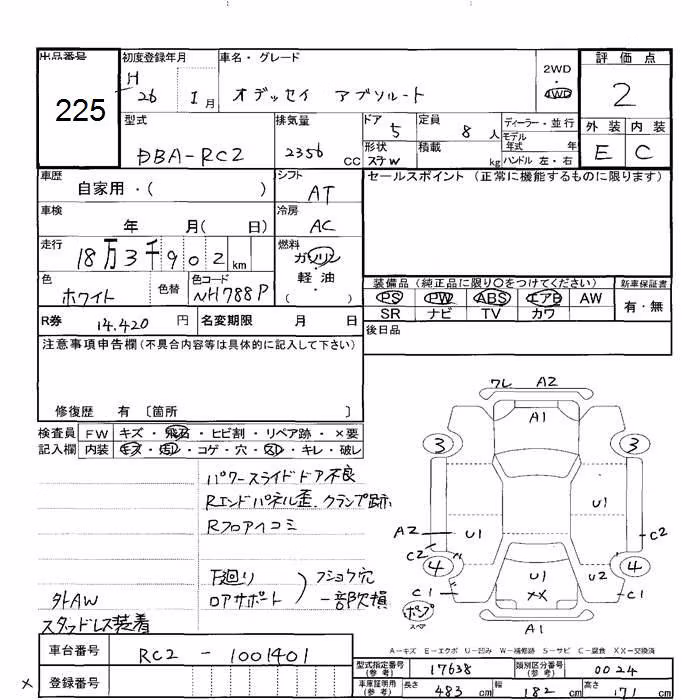 出品番号 初度登録年月 車名・グレード 評価点
225 H 26 1月 オデッセイ アブソルート 2WD・4WD 2
型式 排気量 ドア 5 定員 8人 ディーラー・並行 外装 内装
DBA-RC2 2356 cc 形状 ステW 積載 kg モデル年式 年 E C
ハンドル 左・右
車歴 自家用・( ) シフト AT セールスポイント (正常に機能するものに限ります)
車検 年 月( 日) 冷房 AC
走行 18万3千902km 燃料 ガソリン・軽油・( )
色 ホワイト 色替 色コード NH788P 装備品 (純正品に限り○をつけてください) 新車保証書
PS PW ABS エアB AW 有・無
R券 14,420円 名変期限 月 日 SR ナビ TV カワ
後日品
注意事項申告欄(不具合内容等は具体的に記入して下さい)
修復歴 有 〔箇所 〕
検査員 FW キズ・飛石・ヒビ割・リペア跡・×要
記入欄 内装 キズ・汚レ・コゲ・穴・スレ・キレ・破レ
パワースライドドア不良
Rエンドパネル歪、クランプ跡
Rフロアヘコミ
下廻り フショク穴
ロアサポート 一部欠損
外AW
スタッドレス装着
ワレ A2
A1
3 3
U1
A2 U1 C2
C2
4 4
U1 U2
C1 XX C1
スペア
A1
A-キズ E-エクボ U-凹み W-補修跡 S-サビ C-腐食 XX-交換済
車台番号 RC2 - 1001401 型式指定番号(参考) 17638 類別区分番号(参考) 0024
× 登録番号 車庫証明用(参考) 長さ 483cm 幅 182cm 高さ 171cm